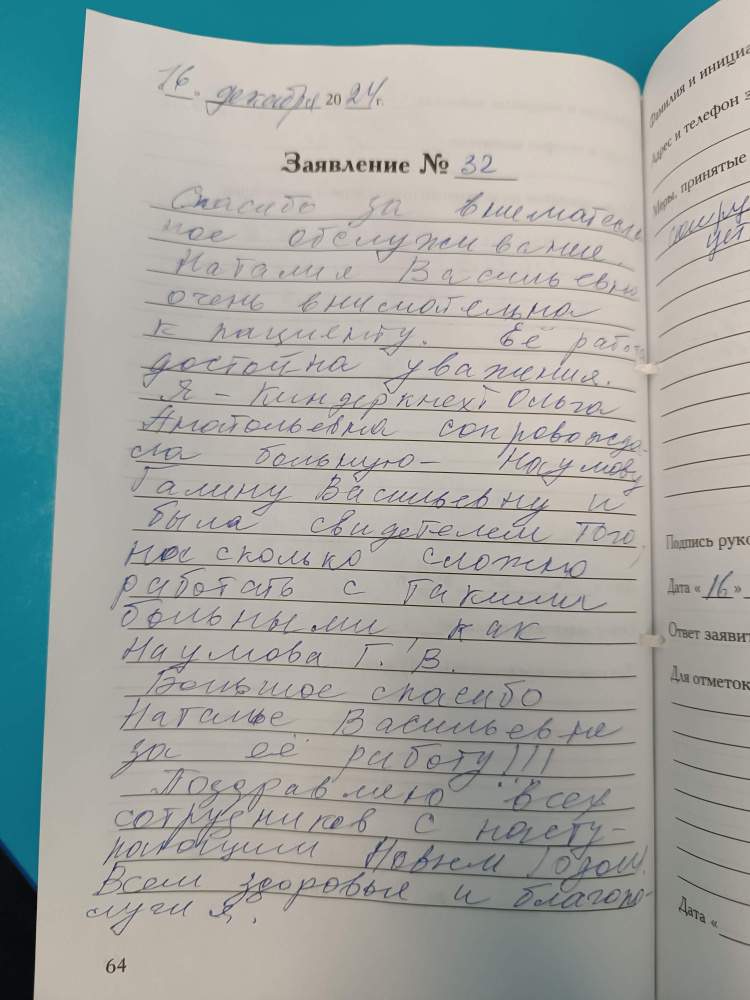 16. декабря 2024 г.
Заявление № 32
Спасибо за вниматель
ное обслуживание.
Наталия Васильевна
очень внимательна
к пациенту. Её работа
достойна уважения.
Я - Киндеркнехт Ольга
Анатольевна сопровожда-
ла больную - Наумову
Галину Васильевну и
была свидетелем того,
на сколько сложно
работать с такими
больными, как
Наумова Г. В.
Большое спасибо
Наталье Васильевне
за её работу!!!
Поздравляю всех
сотрудников с насту-
пающим Новым Годом!
Всем здоровья и благопо-
лучия.
64
Фамилия и инициа
Адрес и телефон з
Меры, принятые
Подпись руко
Дата « 16 »
Ответ заявит
Для отметок
Дата «